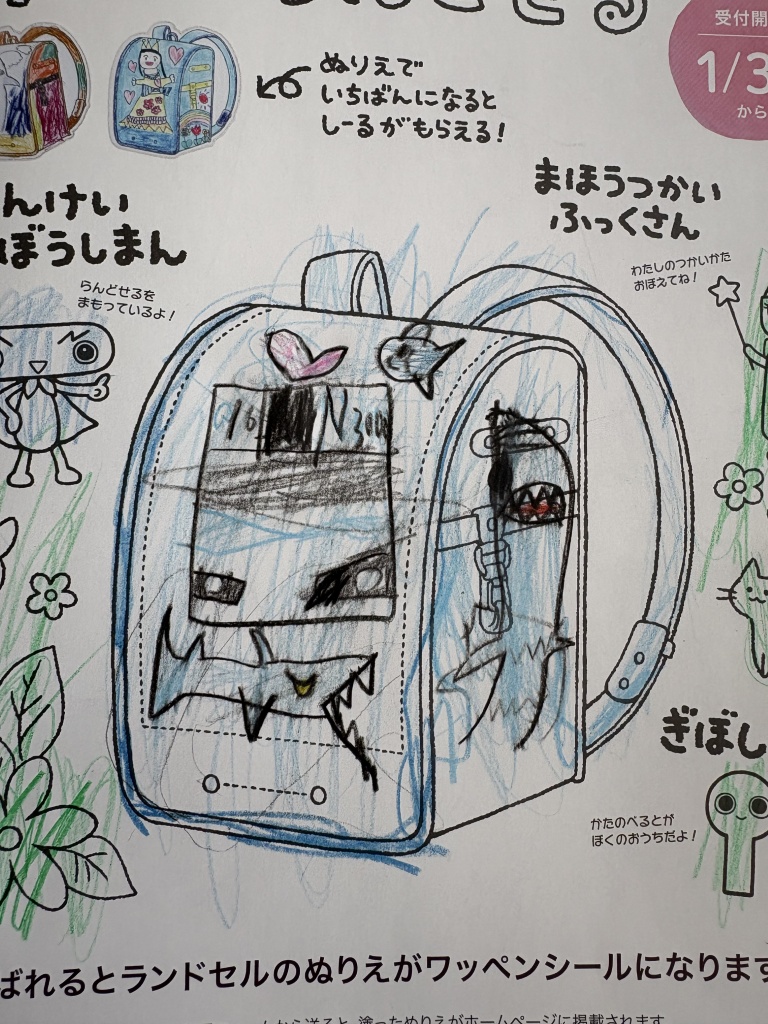 ぬりえで
いちばんになると
しーるがもらえる!
受付開
1/3
から
まほうつかい
ふっくさん
わたしのつかいかた
おぼえてね!
んけい
ぼうしまん
らんどせるを
まもっているよ!
N300
ぎぼし
かたのべるとが
ぼくのおうちだよ!
ばれるとランドセルのぬりえがワッペンシールになります
から送ると、塗ったぬりえがホームページに掲載されます